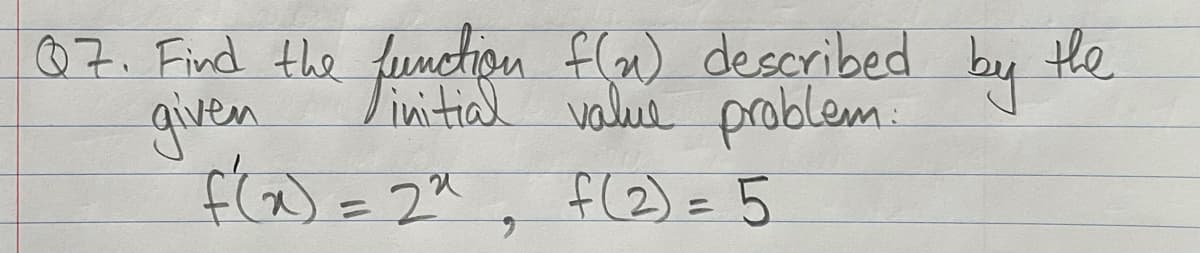 Q7. Find the function f(x) described by the
given initial value problem:
f'(x) = 2ˣ , f(2) = 5